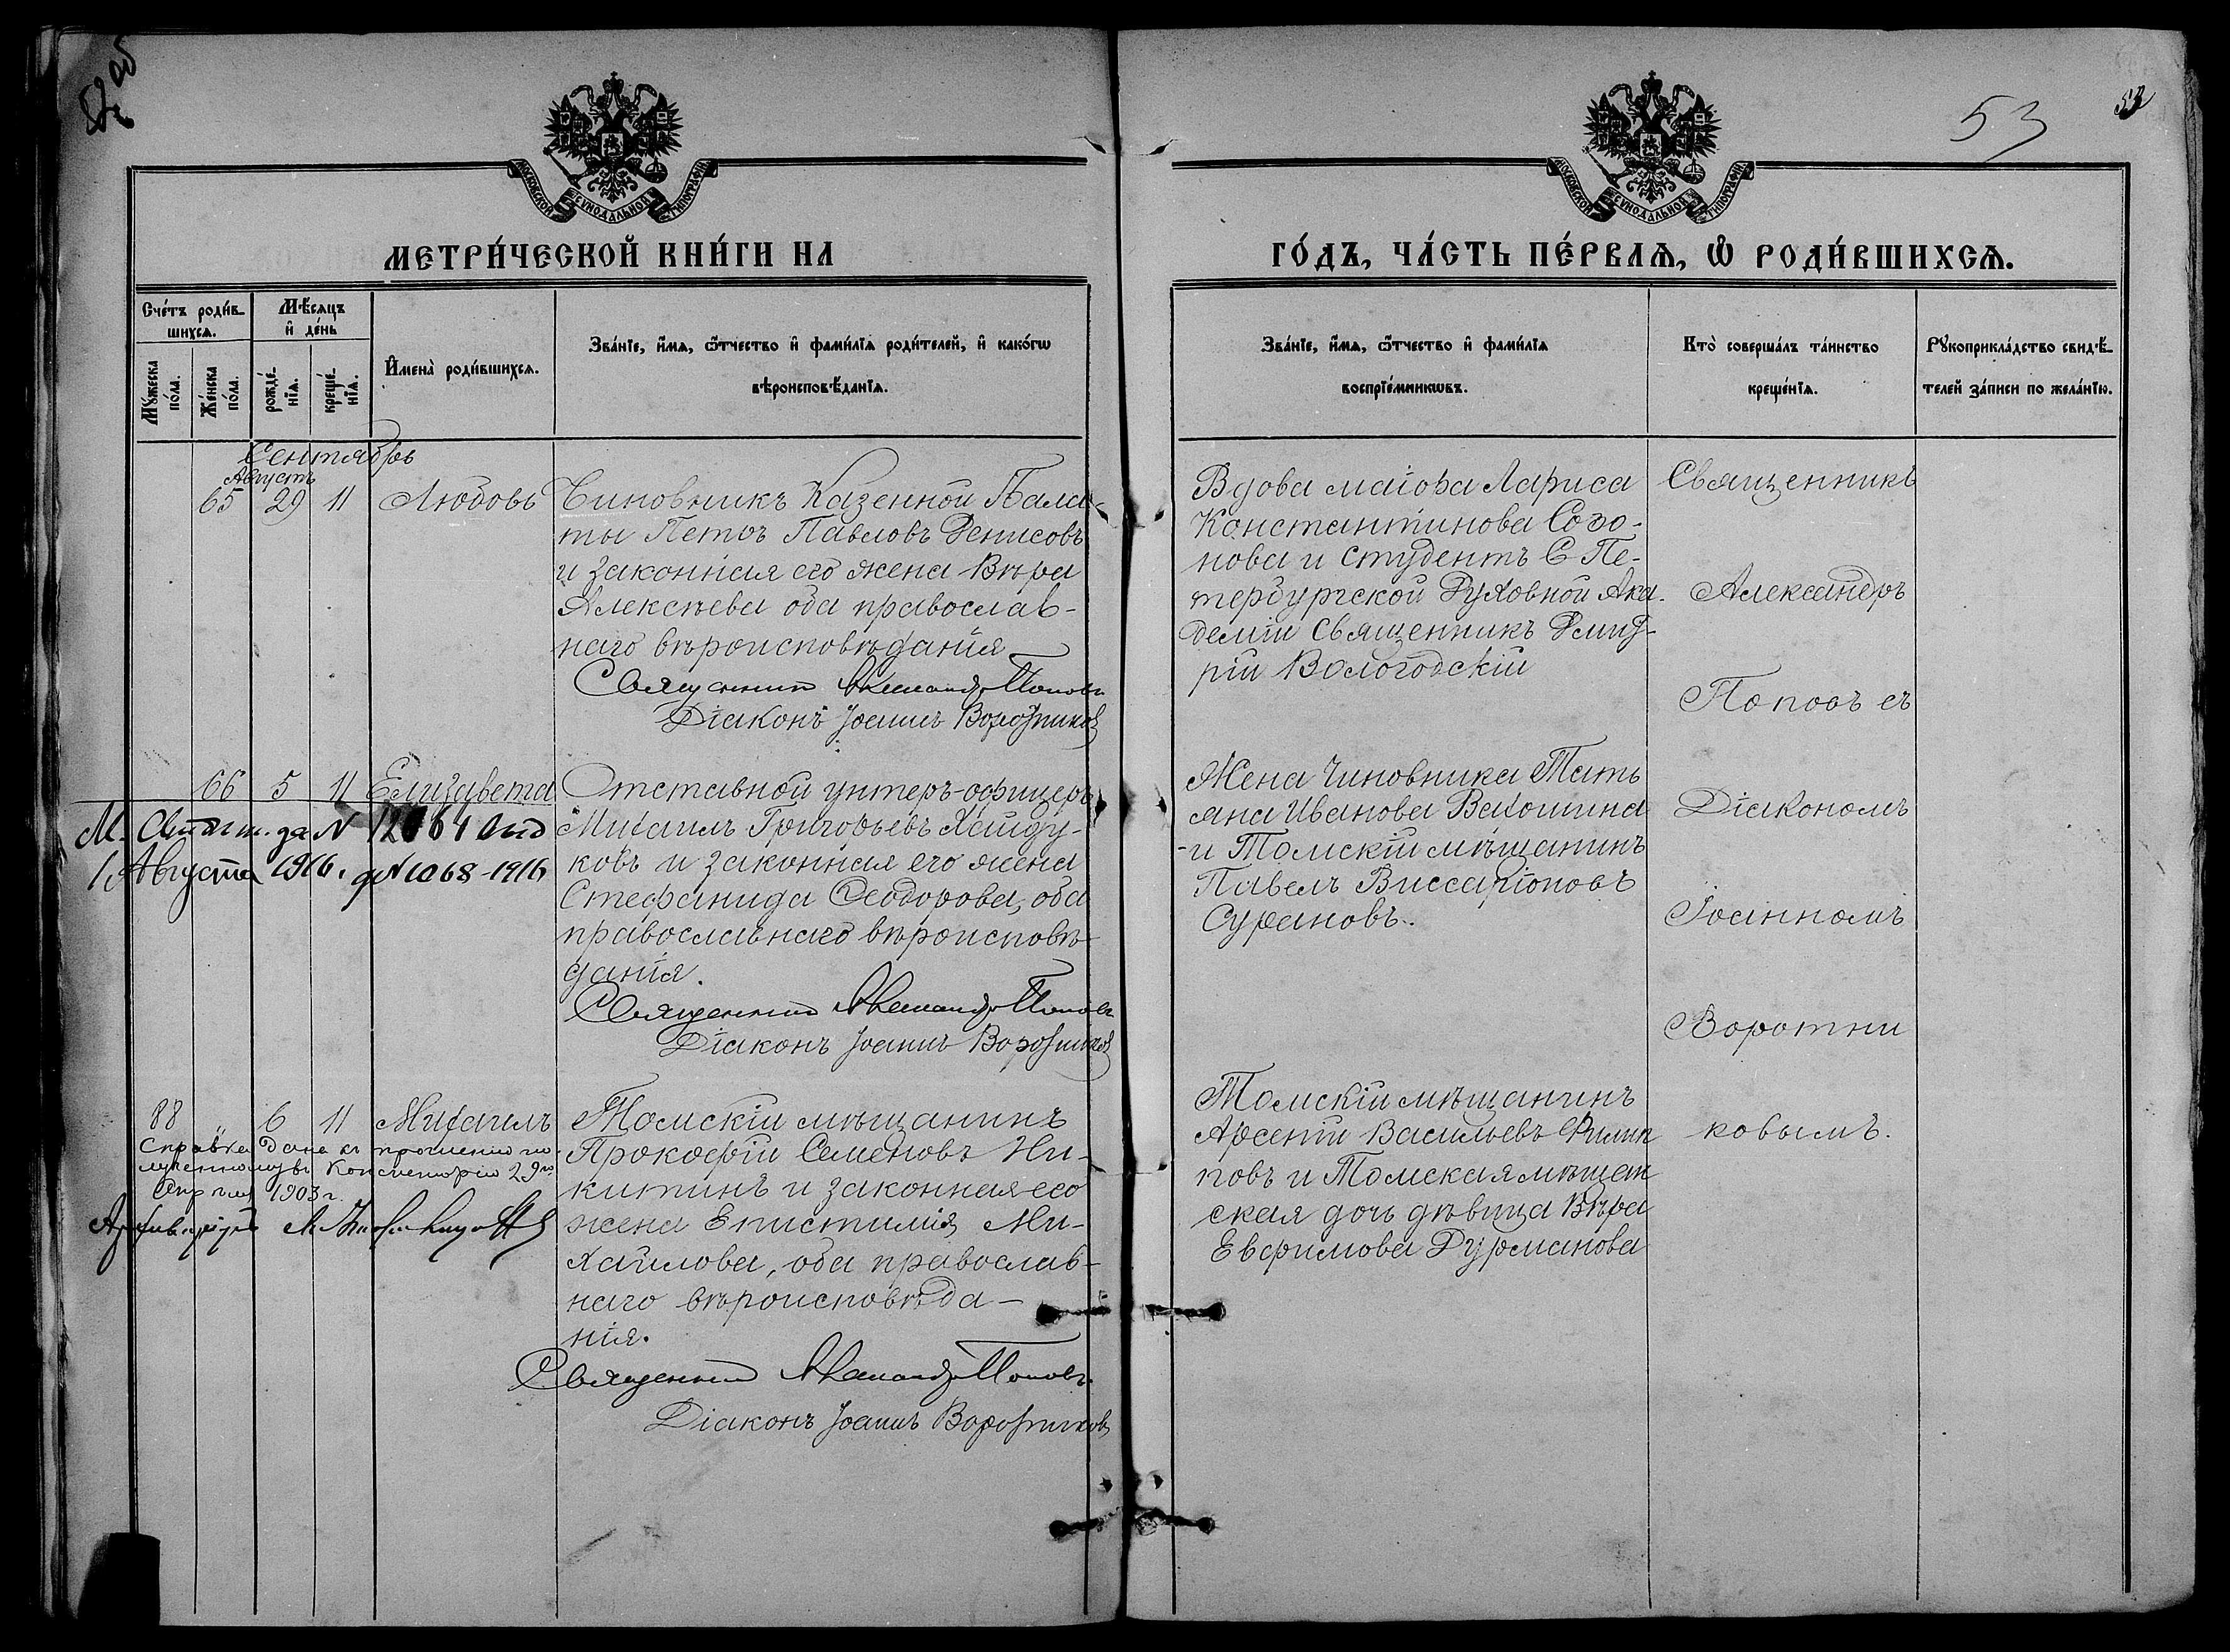 52 об
53
53
МОСКОВСКОЙ СѴНОДАЛЬНОЙ ТИПОГРАФІИ
МОСКОВСКОЙ СѴНОДАЛЬНОЙ ТИПОГРАФІИ
МЕТРИ́ЧЕСКОЙ КНИ́ГИ НА
ГО́ДЪ, ЧА́СТЬ ПЕ́РВАѦ, Ѽ РОДИ́ВШИХСѦ.
Сче́тъ роди́в-
шихсѧ.
Мѣ́сяцъ
и҆ де́нь
Мꙋ́жеска
по́ла.
Же́нска
по́ла.
рожде́-
нїѧ.
креще́-
нїѧ.
И҆мена̀ роди́вшихсѧ.
Зва́нїе, и҆́мѧ, ѿ́чество и҆ фами́лїѧ роди́телей, и҆ како́гѡ
вѣроисповѣ́данїѧ.
Зва́нїе, и҆́мѧ, ѿ́чество и҆ фами́лїѧ
воспрїе́мникѡвъ.
Кто̀ соверша́лъ та́инство
креще́нїѧ.
Рꙋкоприкла́дство свидѣ́-
телей за́писи по жела́нїю.
Сентябрь
Августъ
65 29 11 Любовь
Чиновникъ Казенной Пала-
ты Петръ Павловъ Денисовъ
и законная его жена Вѣра
Алексѣева оба православ-
наго вѣроисповѣданія
Священникъ Александръ Поповъ
Діаконъ Іоаннъ Воротниковъ
Вдова маіора Лариса
Константинова Созо-
нова и студентъ С Пе-
тербургской Духовной Ака-
деміи священникъ Дмит-
рій Вологодскій
Священникъ
Александръ
Поповъ съ
Діакономъ
Іоанномъ
Воротни
ковымъ.
66 5 11 Елизавета
М. за N 12664
1 Августа 1916. д N 1068-1916
Отставной унтеръ-офицеръ
Михаилъ Григорьевъ Хайду-
ковъ и законная его жена
Стефанида Ѳеодорова, оба
православнаго вѣроисповѣ-
данія.
Священникъ Александръ Поповъ
Діаконъ Іоаннъ Воротниковъ
Жена Чиновника Тать
яна Иванова Вакошина
и Томскій мѣщанинъ
Павелъ Виссаріоновъ
Сурановъ.
88 6 11 Михаилъ
Справка дана къ прошенію по-
лученному въ Консисторію 29го
Апрѣля 1903 г.
Архиваріусъ
Томскій мѣщанинъ
Прокофій Семеновъ Ни-
китинъ и законная его
жена Епистимія Ми-
хайлова, оба православ-
наго вѣроисповѣда-
нія.
Священникъ Александръ Поповъ.
Діаконъ Іоаннъ Воротниковъ
Томскій мѣщанинъ
Арсеній Васильевъ Филип
повъ и Томская мѣщан
ская дочь дѣвица Вѣра
Евфимова Дурманова